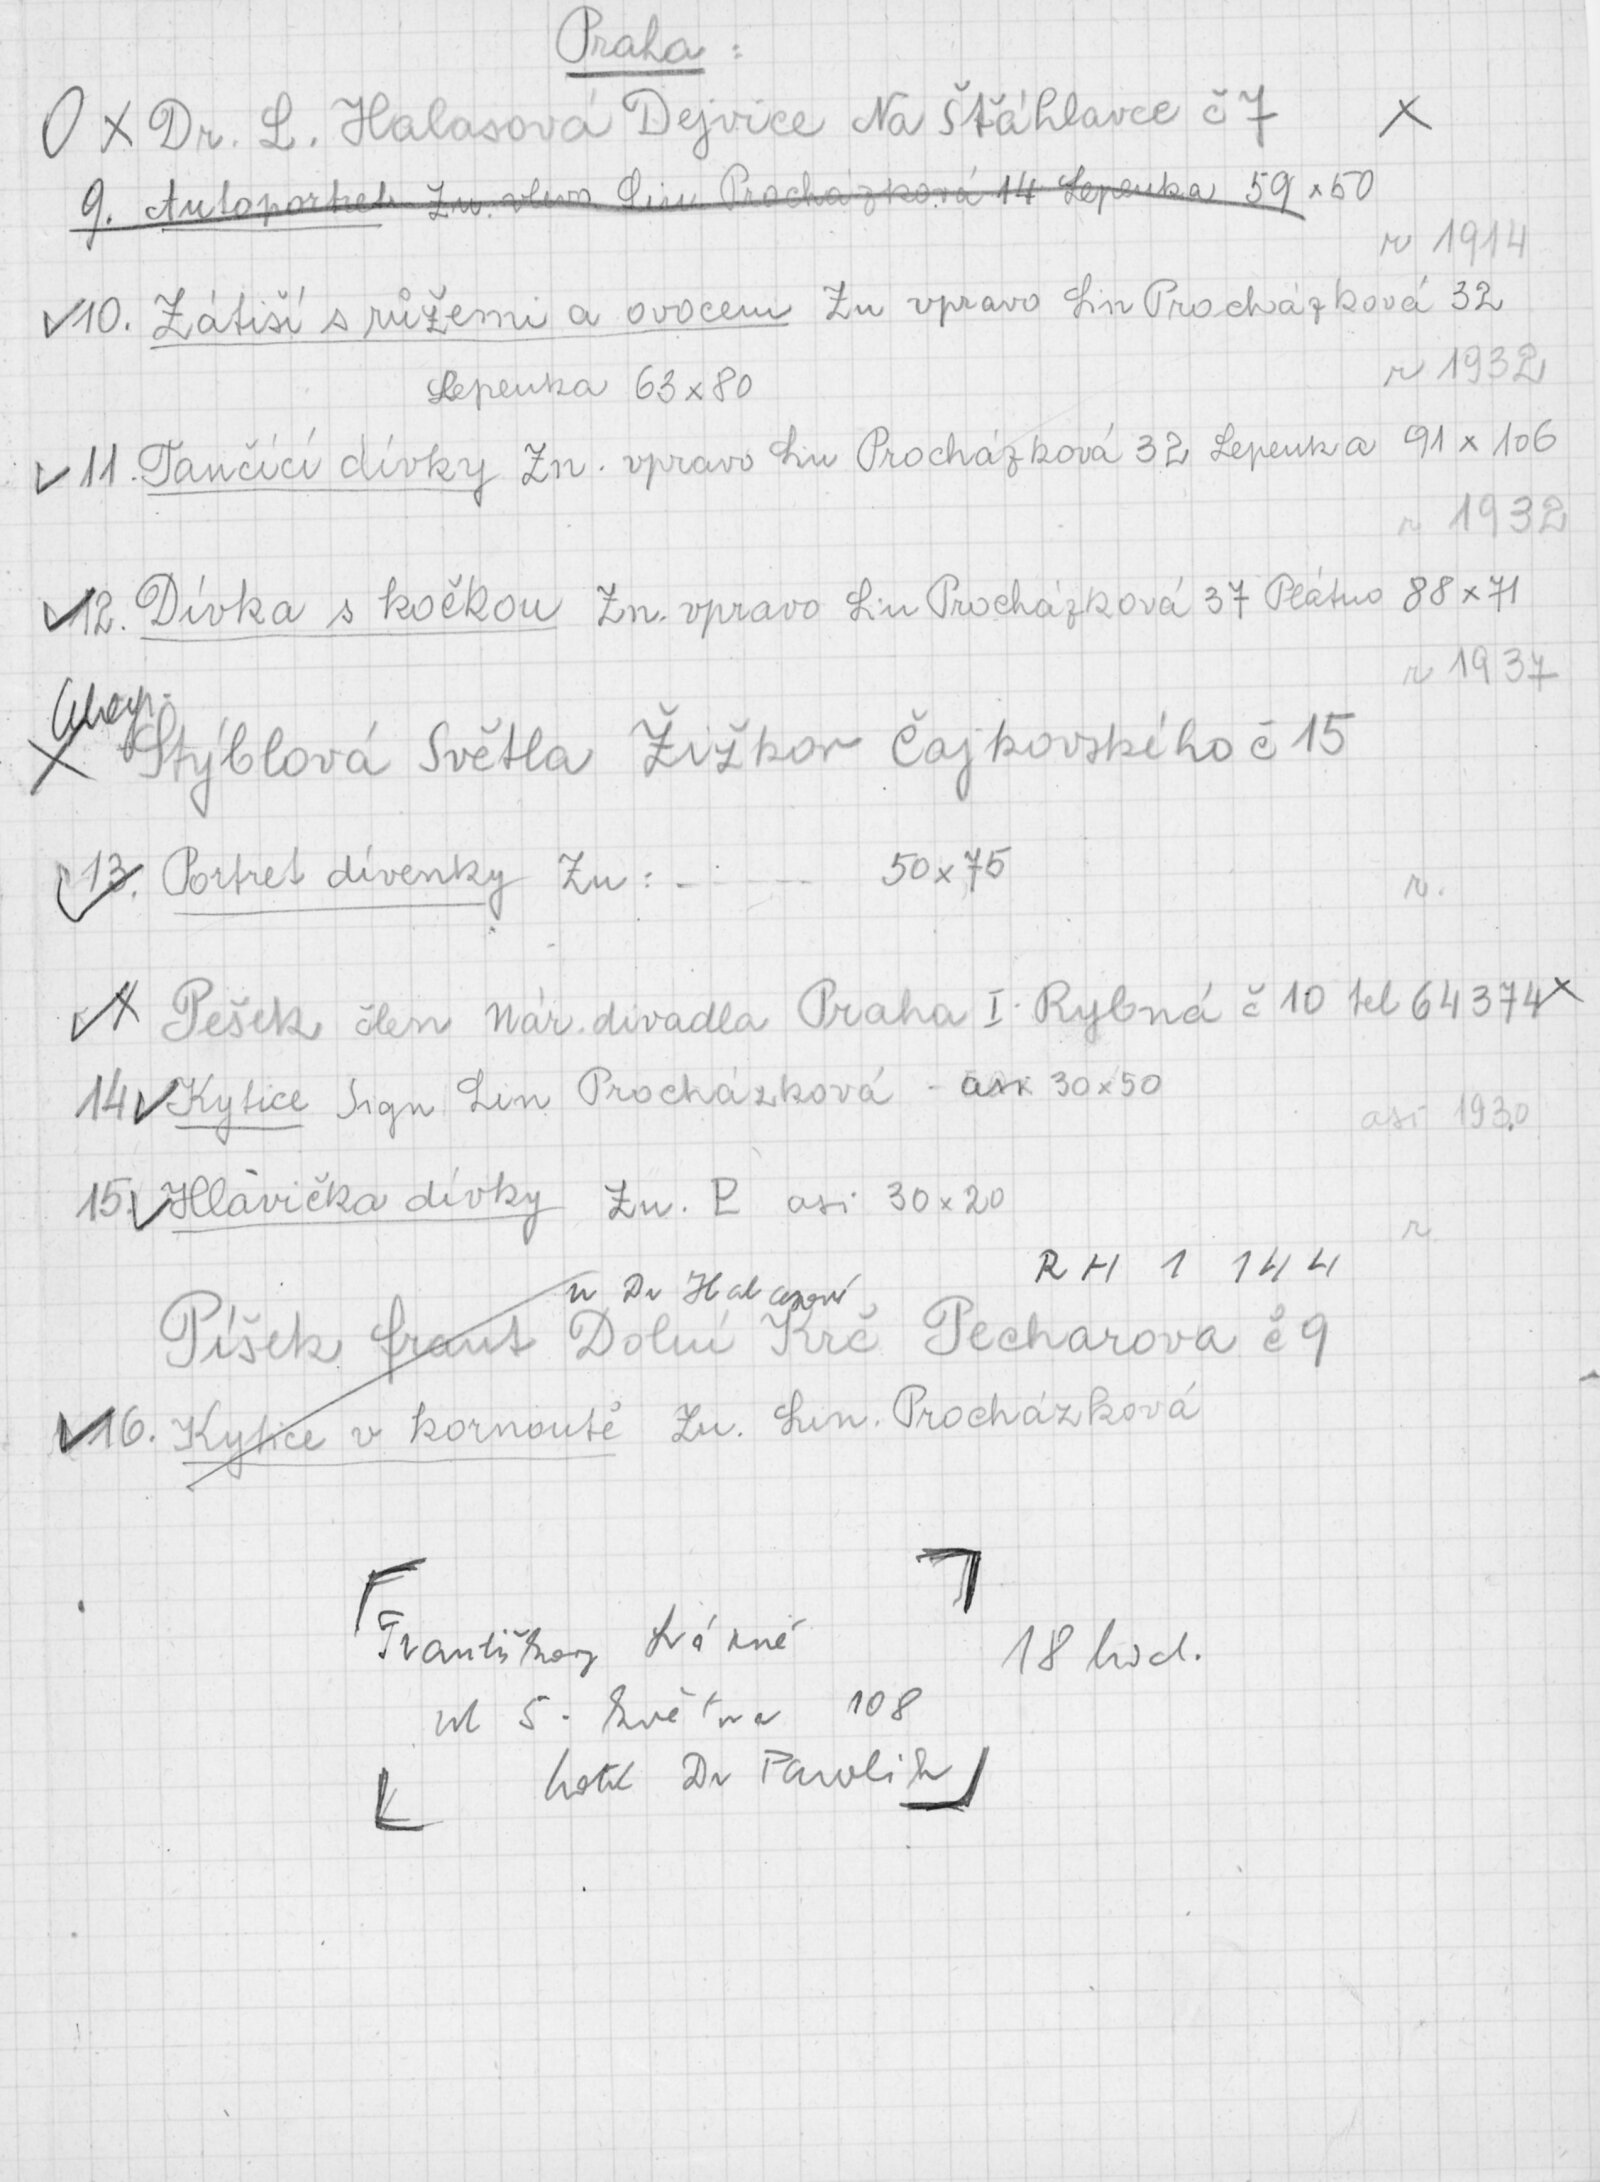 Praha :
O x Dr. L. Halasová Dejvice Na Štáhlavce č 7 x
9. Autoportret Zn. vlevo Lin Procházková 14 Lepenka 59 x 50
r 1914
✓ 10. Zátiší s růžemi a ovocem Zn vpravo Lin Procházková 32
Lepenka 63 x 80 r 1932
✓ 11. Tančící dívky Zn. vpravo Lin Procházková 32 Lepenka 91 x 106
r 1932
✓ 12. Dívka s kočkou Zn. vpravo Lin Procházková 37 Plátno 88 x 71
r 1937
x Stýblová Světla Žižkov Čajkovského č 15
✓ 13. Portret dívenky Zn : 50 x 75 r.
✓ x Pešek člen Nár. divadla Praha I. Rybná č 10 tel 64374 x
14 ✓ Kytice Sign Lin Procházková - 30 x 50
asi 1930
15. ✓ Hlavička dívky Zn. P asi 30 x 20
r
RH 1 144
u Dr Halasové
Píšek frant Dolní Krč Pecharova č 9
✓ 16. Kytice v kornoutě Zn. Lin. Procházková
Františkovy Lázně 18 hod.
ul 5. května 108
hotel Dr Pawlik